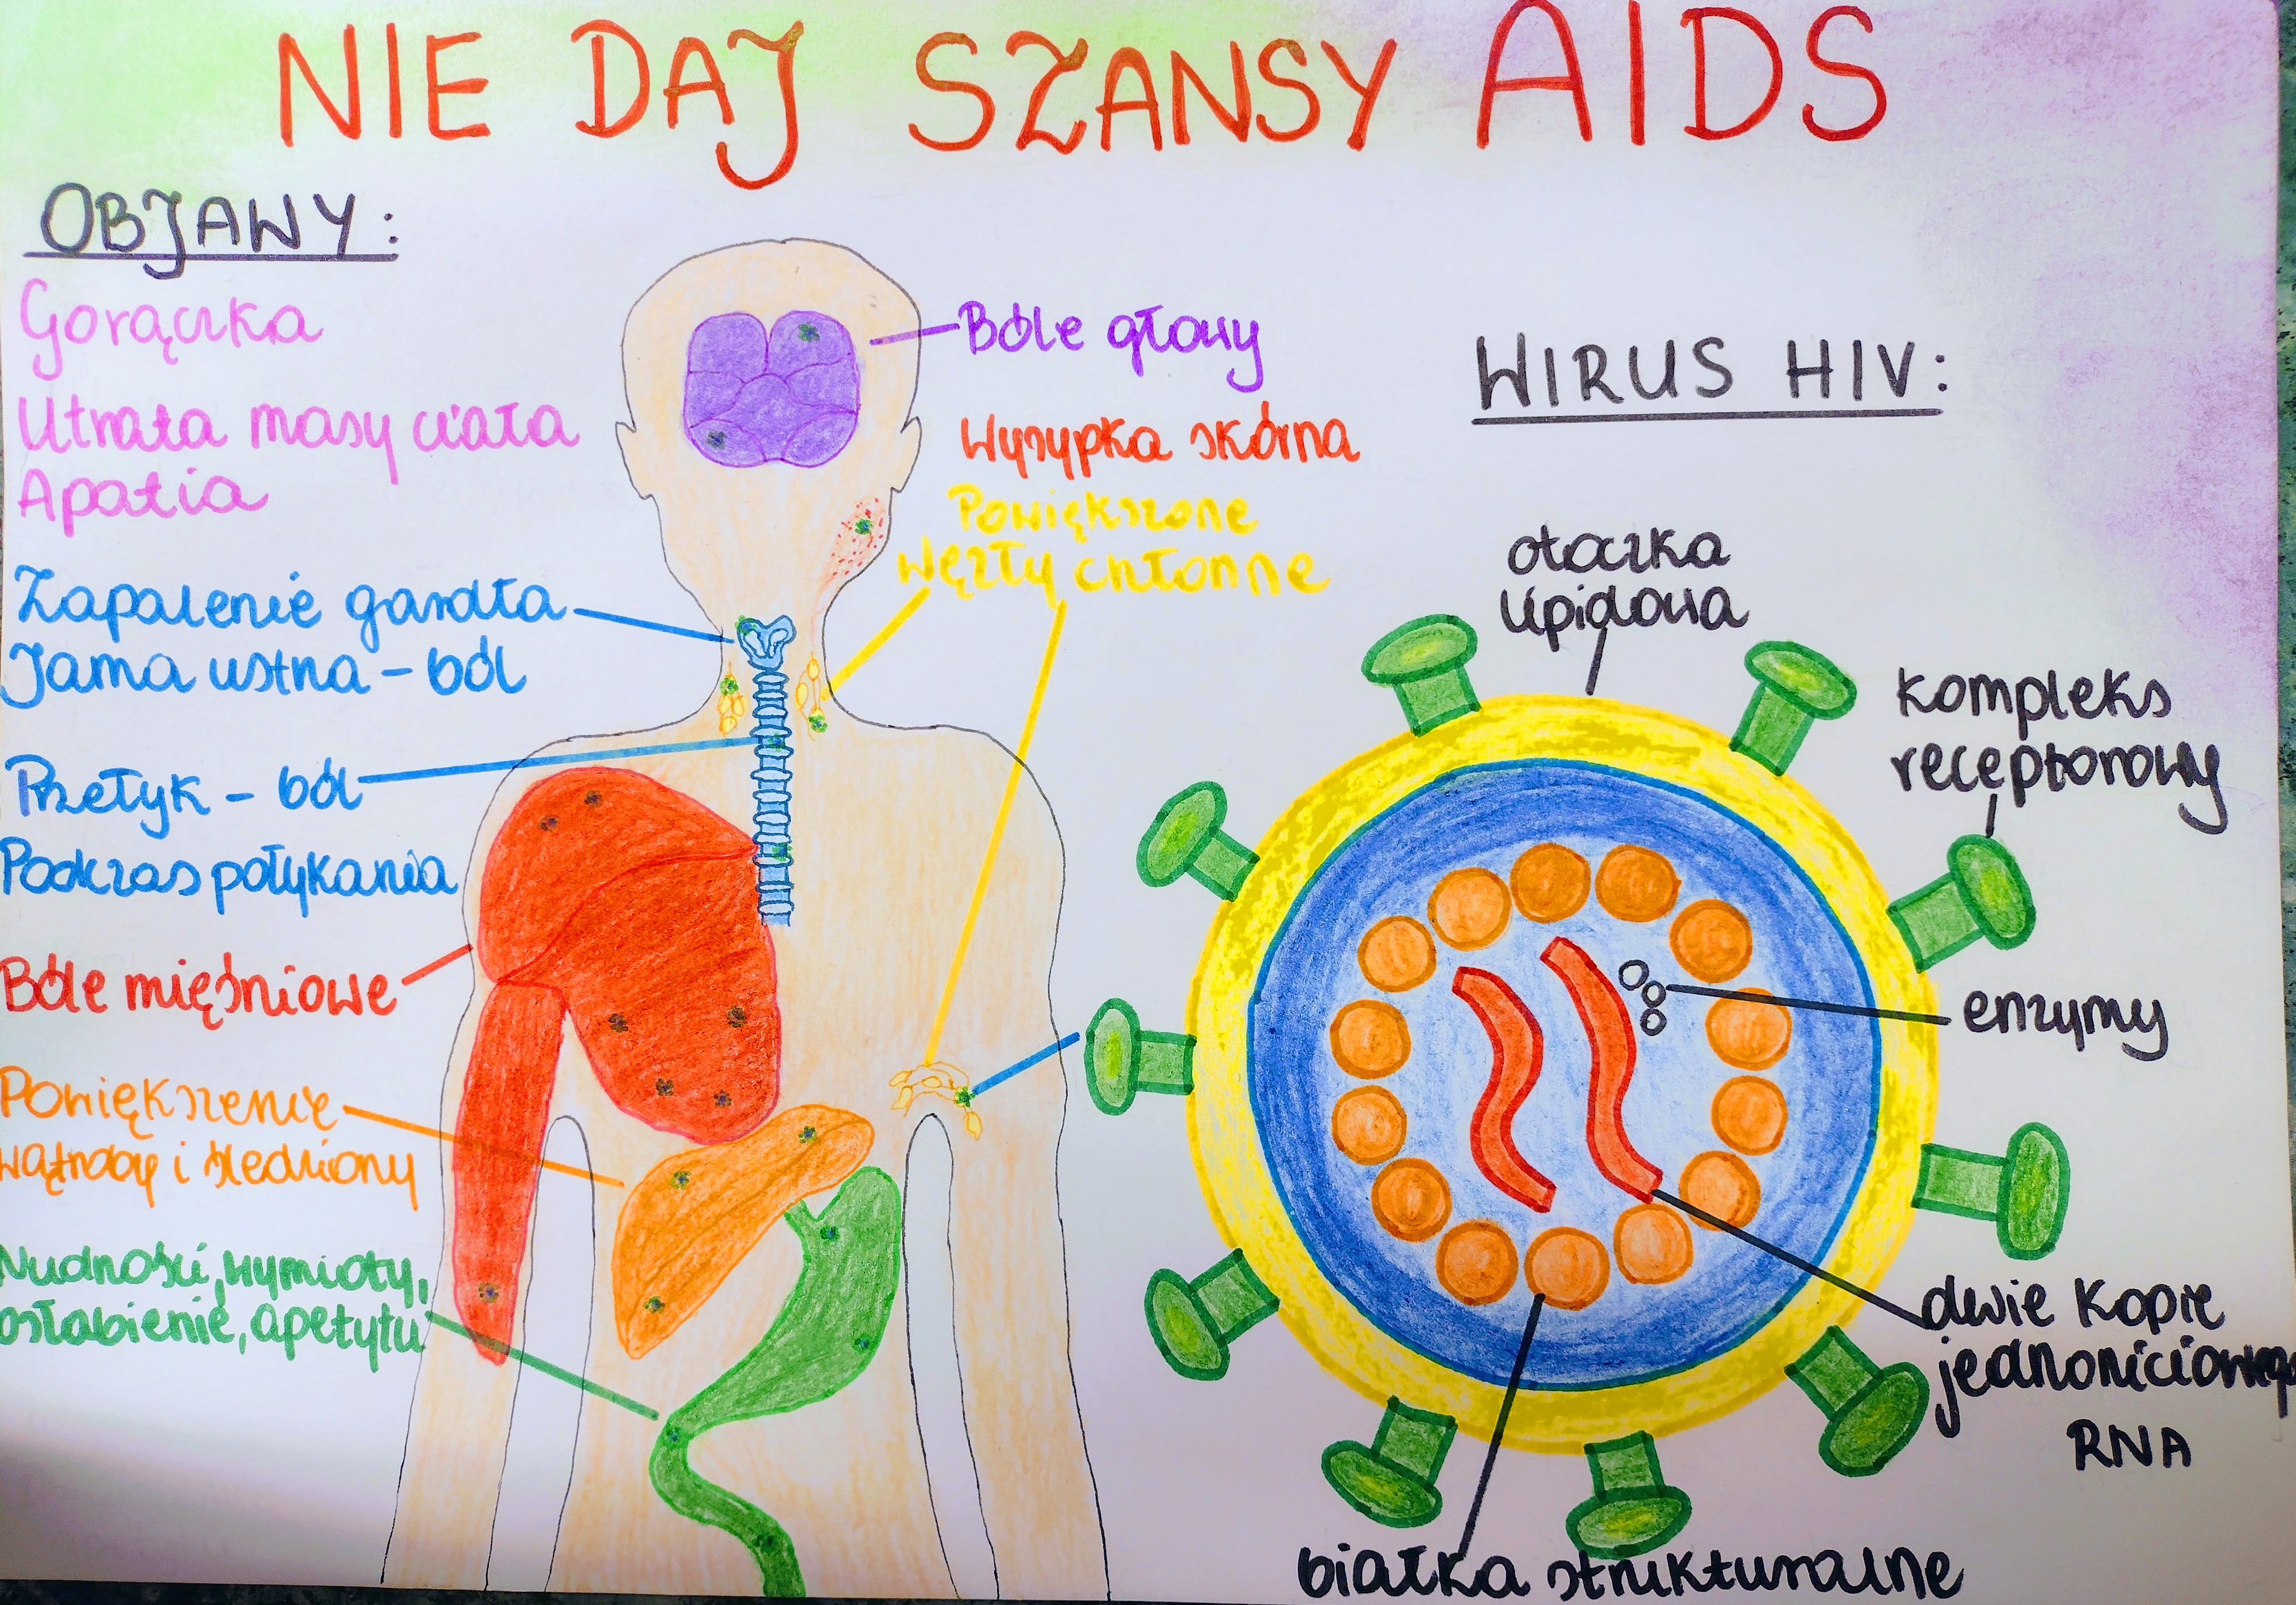 NIE DAJ SZANSY AIDS
OBJAWY:
Gorączka
Utrata masy ciała
Apatia
Zapalenie gardła
Jama ustna - ból
Przełyk - ból
Podczas połykania
Bóle mięśniowe
Powiększenie
wątroby i śledziony
Nudności, wymioty,
osłabienie, apetytu
Bóle głowy
Wysypka skórna
Powiększone
węzły chłonne
WIRUS HIV:
otoczka
lipidowa
kompleks
receptorowy
enzymy
dwie kopie
jednoniciowego
RNA
białka strukturalne